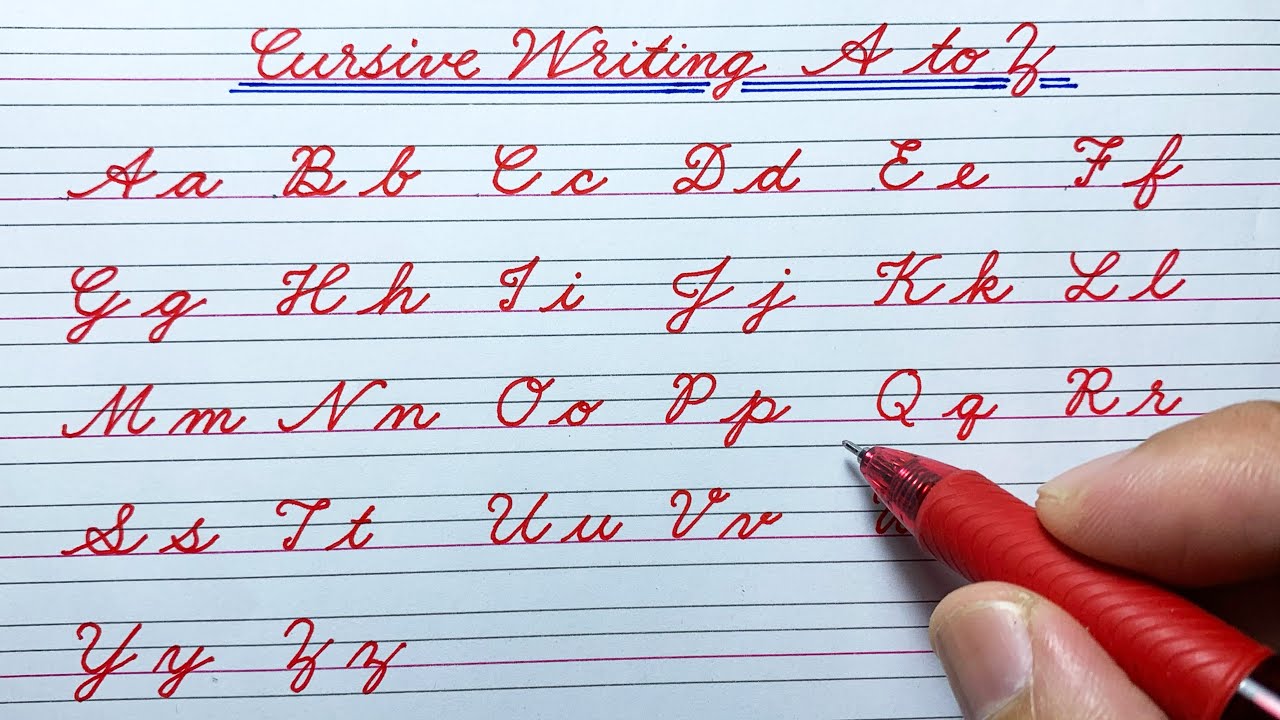 Cursive Writing A to Z
Aa Bb Cc Dd Ee Ff
Gg Hh Ii Jj Kk Ll
Mm Nn Oo Pp Qq Rr
Ss Tt Uu Vv
Yy Zz